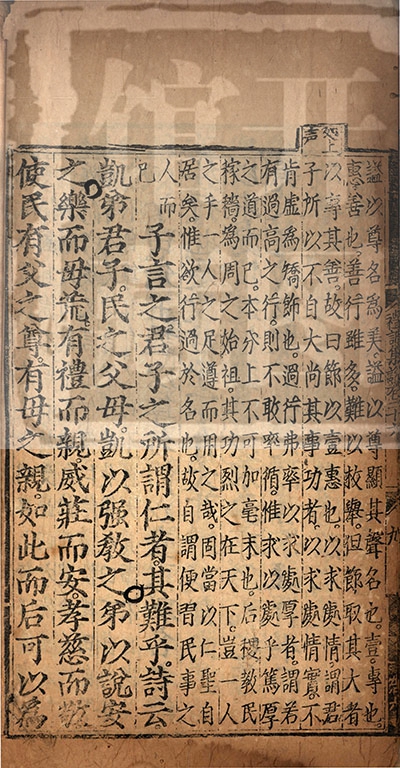 处上声
謚以尊名為美。謚以尊顯其聲名也。壹。專也。
惠善也。善行雖多。難以枚舉。但節取其大者
以專其善。故曰節以壹惠也。以求處情。謂君
子所以不自大尚其事功者。以求處情實。不
肯虛為矯飾也。過行弗率以求處厚者。謂若
有過高之行。則不敢率循。惟求以處乎篤厚
之道而已。本分上不可加毫末也。后稷教民
稼穡。為周之始祖。其功烈之在天下。豈一人
之手一人之足遵而用之哉。固當以仁聖自
居矣。惟欲行過於名也。故自謂便習民事之
人而已
子言之。君子之所謂仁者。其難乎。詩云。
凱弟君子。民之父母。凱以强教之。弟以說安
之。樂而毋荒。有禮而親。威莊而安。孝慈而敬。
使民有父之尊。有母之親。如此而后可以為